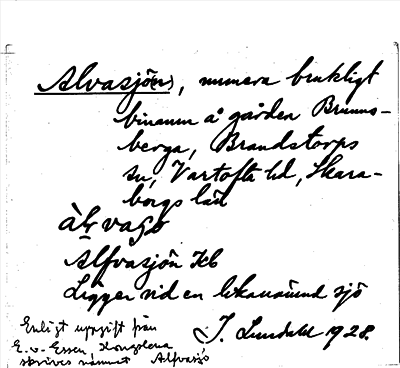 Alvasjö(n), numera brukligt
binamn å gården Brunns-
berga, Brandstorps
sn, Vartofta hd, Skara-
borgs län
Alfvasjön Kb
Ligger vid en likanämnd sjö
J. Lundahl 1928.
Enligt uppgift från
E. v. Essen Kongslena
skrives namnet Alfvasjö